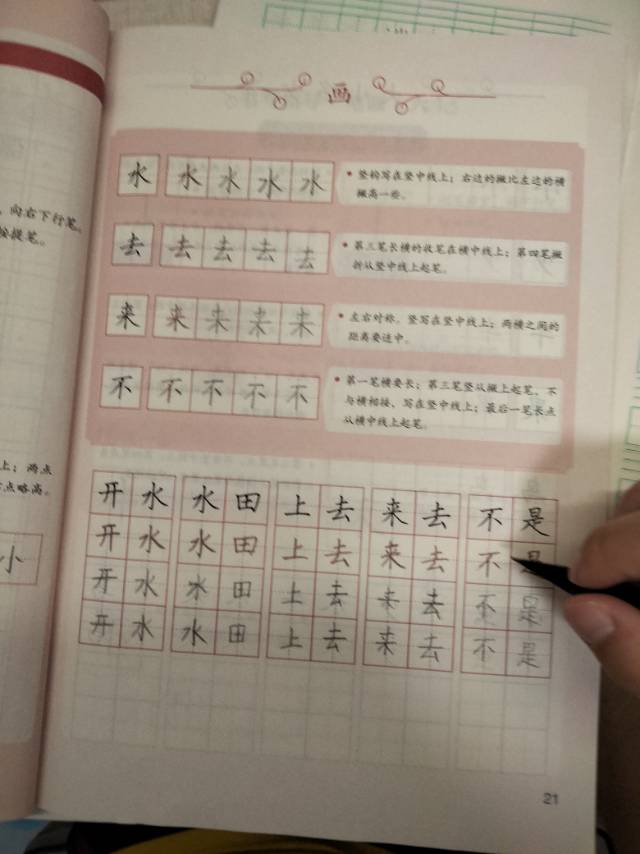 画
，向右下行笔，
按提笔。
水 水 水 水 水
竖钩写在竖中线上；右边的撇比左边的横
撇高一些。
去 去 去 去 去
第三笔长横的收笔在横中线上；第四笔撇
折从竖中线上起笔。
来 来 来 来 来
左右对称，竖写在竖中线上；两横之间的
距离要适中。
不 不 不 不 不
第一笔横要长；第三笔竖从撇上起笔，不
与横相接，写在竖中线上；最后一笔长点
从横中线上起笔。
上；两点
点略高。
小
开 水 水 田 上 去 来 去 不 是
开 水 水 田 上 去 来 去 不
开 水 水 田 上 去 来 去 不 是
开 水 水 田 上 去 来 去 不 是
21